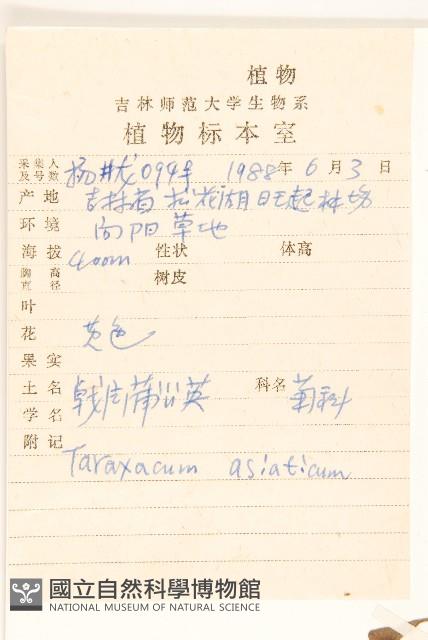 植物
吉林师范大学生物系
植物标本室
采集人及号数 杨井戎 094年 1988年6月3日
产地 吉林省松花湖旺起林场
环境 向阳草地
海拔 400m 性状 体高
胸高直径 树皮
叶
花 黄色
果实
土名 戟片蒲公英 科名 菊科
学名
附记
Taraxacum asiaticum
國立自然科學博物館
NATIONAL MUSEUM OF NATURAL SCIENCE